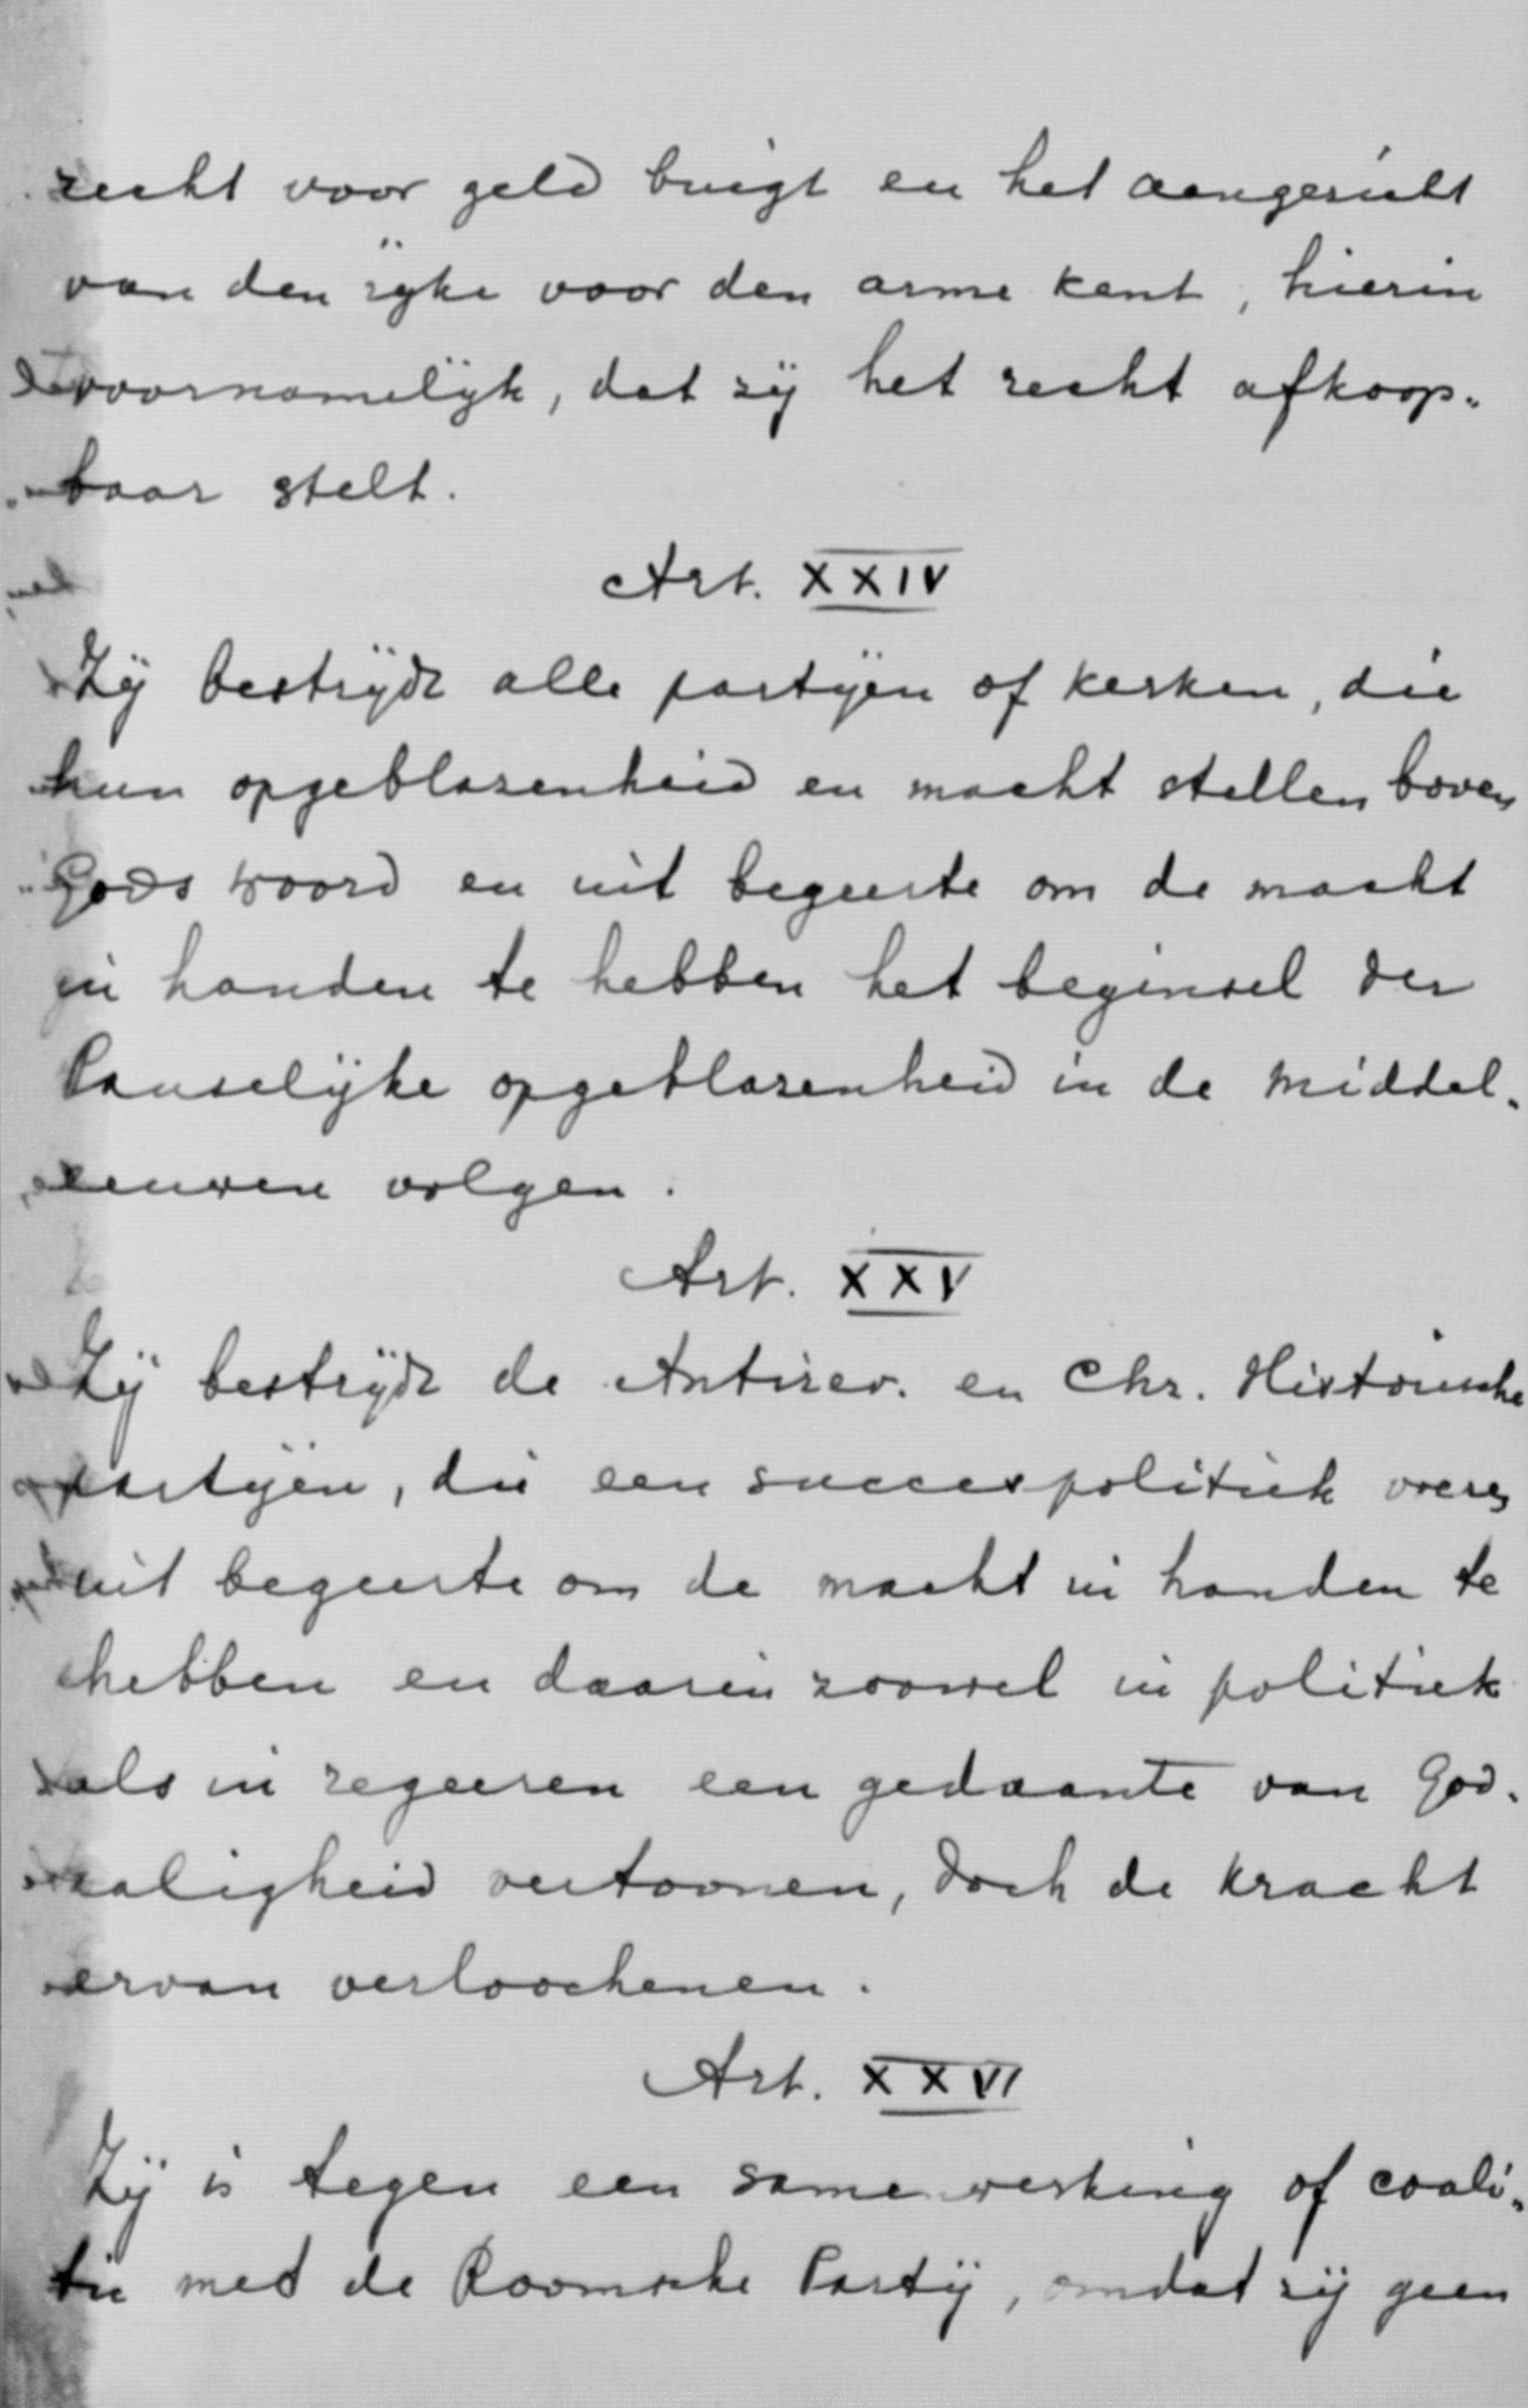 recht voor geld buigt en het aangezicht
van den rijke voor den arme kent, hierin
voornamelijk, dat zij het recht afkoop-
baar stelt.
Art. XXIV
Zij bestrijdt alle partijen of kerken, die
hun opgeblazenheid en macht stellen boven
Gods woord en uit begeerte om de macht
in handen te hebben het beginsel der
Pauselijke opgeblazenheid in de middel-
eeuwen volgen.
Art. XXV
Zij bestrijdt de Antirev. en Chr. Historische
partijen, die een succespolitiek voeren
uit begeerte om de macht in handen te
hebben en daarin zoowel in politiek
als in regeeren een gedaante van God-
zaligheid vertoonen, doch de kracht
ervan verloochenen.
Art. XXVI
Zij is tegen een samenwerking of coali-
tie met de Roomsche Partij, omdat zij geen